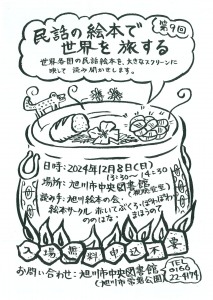 第9回
民話の絵本で
世界を旅する
世界各国の民話絵本を、大きなスクリーンに
映して読み聞かせします。
日時：2024年12月8日(日)
13:30〜14:30
場所：旭川市中央図書館
(視聴覚室)
読み手：旭川絵本の会・
絵本サークル 赤いてぶくろ・ぽけぽけ・
ののはな・まほうので
入場無料申込不要
お問い合わせ：旭川市中央図書館
(旭川市常磐公園)
TEL
0166
22-4174